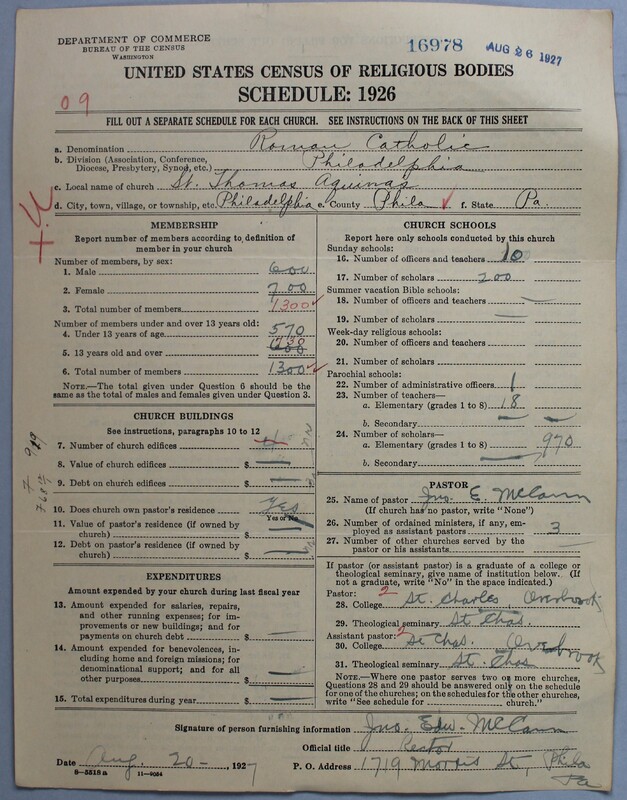 DEPARTMENT OF COMMERCE
BUREAU OF THE CENSUS
WASHINGTON
16978 AUG 26 1927
UNITED STATES CENSUS OF RELIGIOUS BODIES
SCHEDULE: 1926
09
FILL OUT A SEPARATE SCHEDULE FOR EACH CHURCH. SEE INSTRUCTIONS ON THE BACK OF THIS SHEET
a. Denomination Roman Catholic
b. Division (Association, Conference, Diocese, Presbytery, Synod, etc.) Philadelphia
c. Local name of church St. Thomas Aquinas
d. City, town, village, or township, etc. Philadelphia e. County Phila f. State Pa.
MEMBERSHIP
Report number of members according to definition of
member in your church
Number of members, by sex:
1. Male 600
2. Female 700
3. Total number of members 1300
Number of members under and over 13 years old:
4. Under 13 years of age 570
5. 13 years old and over 730
6. Total number of members 1300
NOTE.—The total given under Question 6 should be
same as the total of males and females given under Question 3.
CHURCH BUILDINGS
See instructions, paragraphs 10 to 12
7. Number of church edifices
8. Value of church edifices $
9. Debt on church edifices $
10. Does church own pastor's residence Yes
Yes or No
11. Value of pastor's residence (if owned by
church) $
12. Debt on pastor's residence (if owned by
church) $
EXPENDITURES
Amount expended by your church during last fiscal year
13. Amount expended for salaries, repairs,
and other running expenses; for im-
provements or new buildings; and for
payments on church debt $
14. Amount expended for benevolences, in-
cluding home and foreign missions; for
denominational support; and for all
other purposes $
15. Total expenditures during year $
CHURCH SCHOOLS
Report here only schools conducted by this church
Sunday schools:
16. Number of officers and teachers 10
17. Number of scholars 200
Summer vacation Bible schools:
18. Number of officers and teachers
19. Number of scholars
Week-day religious schools:
20. Number of officers and teachers
21. Number of scholars
Parochial schools:
22. Number of administrative officers 1
23. Number of teachers—
a. Elementary (grades 1 to 8) 18
b. Secondary
24. Number of scholars—
a. Elementary (grades 1 to 8) 970
b. Secondary
PASTOR
25. Name of pastor Jno. E. McCann
(If church has no pastor, write "None")
26. Number of ordained ministers, if any, em-
ployed as assistant pastors 3
27. Number of other churches served by the
pastor or his assistants
If pastor (or assistant pastor) is a graduate of a college or
theological seminary, give name of institution below. (If
not a graduate, write "No" in the space indicated.)
Pastor: 2
28. College St. Charles Overbrook
29. Theological seminary St Chas.
Assistant pastor: 2
30. College St Chas. Overbrook
31. Theological seminary St. Chas
NOTE.—Where one pastor serves two or more churches,
Questions 28 and 29 should be answered only on the schedule
for one of the churches; on the schedules for the other churches,
write "See schedule for church."
Signature of person furnishing information Jno. Edw. McCann
Official title Rector
Date Aug. 20 -, 1927 P. O. Address 1719 Morris St, Phila
Pa
8-5518a 11-9054